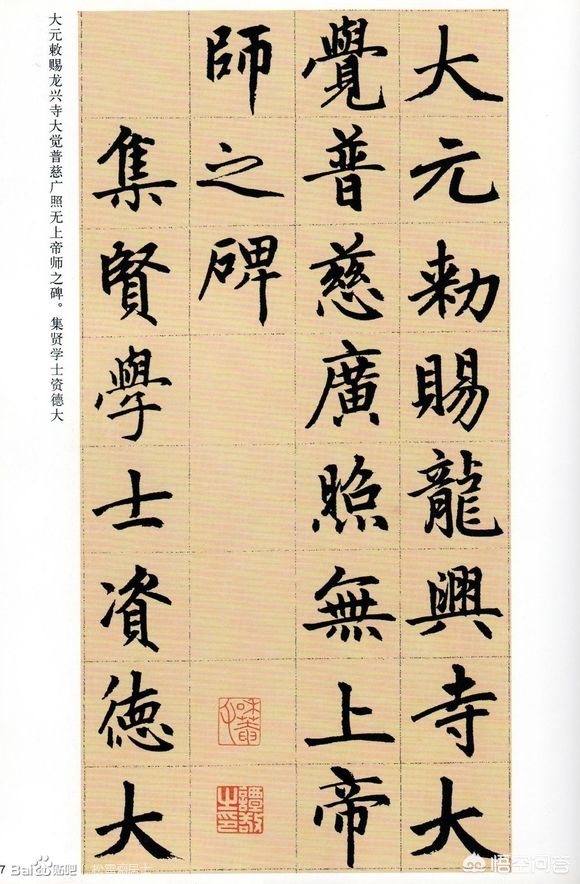 大元勅賜龍興寺大
覺普慈廣照無上帝
師之碑
集賢學士資德大
大元敕赐龙兴寺大觉普慈广照无上帝师之碑。集贤学士资德大
7
Bai贴吧
悟空问答